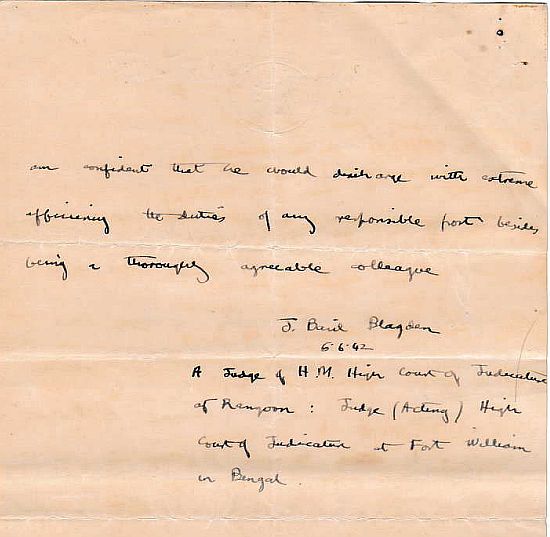 am confident that he would discharge with extreme
efficiency the duties of any responsible post besides
being a thoroughly agreeable colleague
J. Basil Blagden
6.6.42
A Judge of H.M. High Court of Judicature
at Rangoon : Judge (Acting) High
Court of Judicature at Fort William
in Bengal.